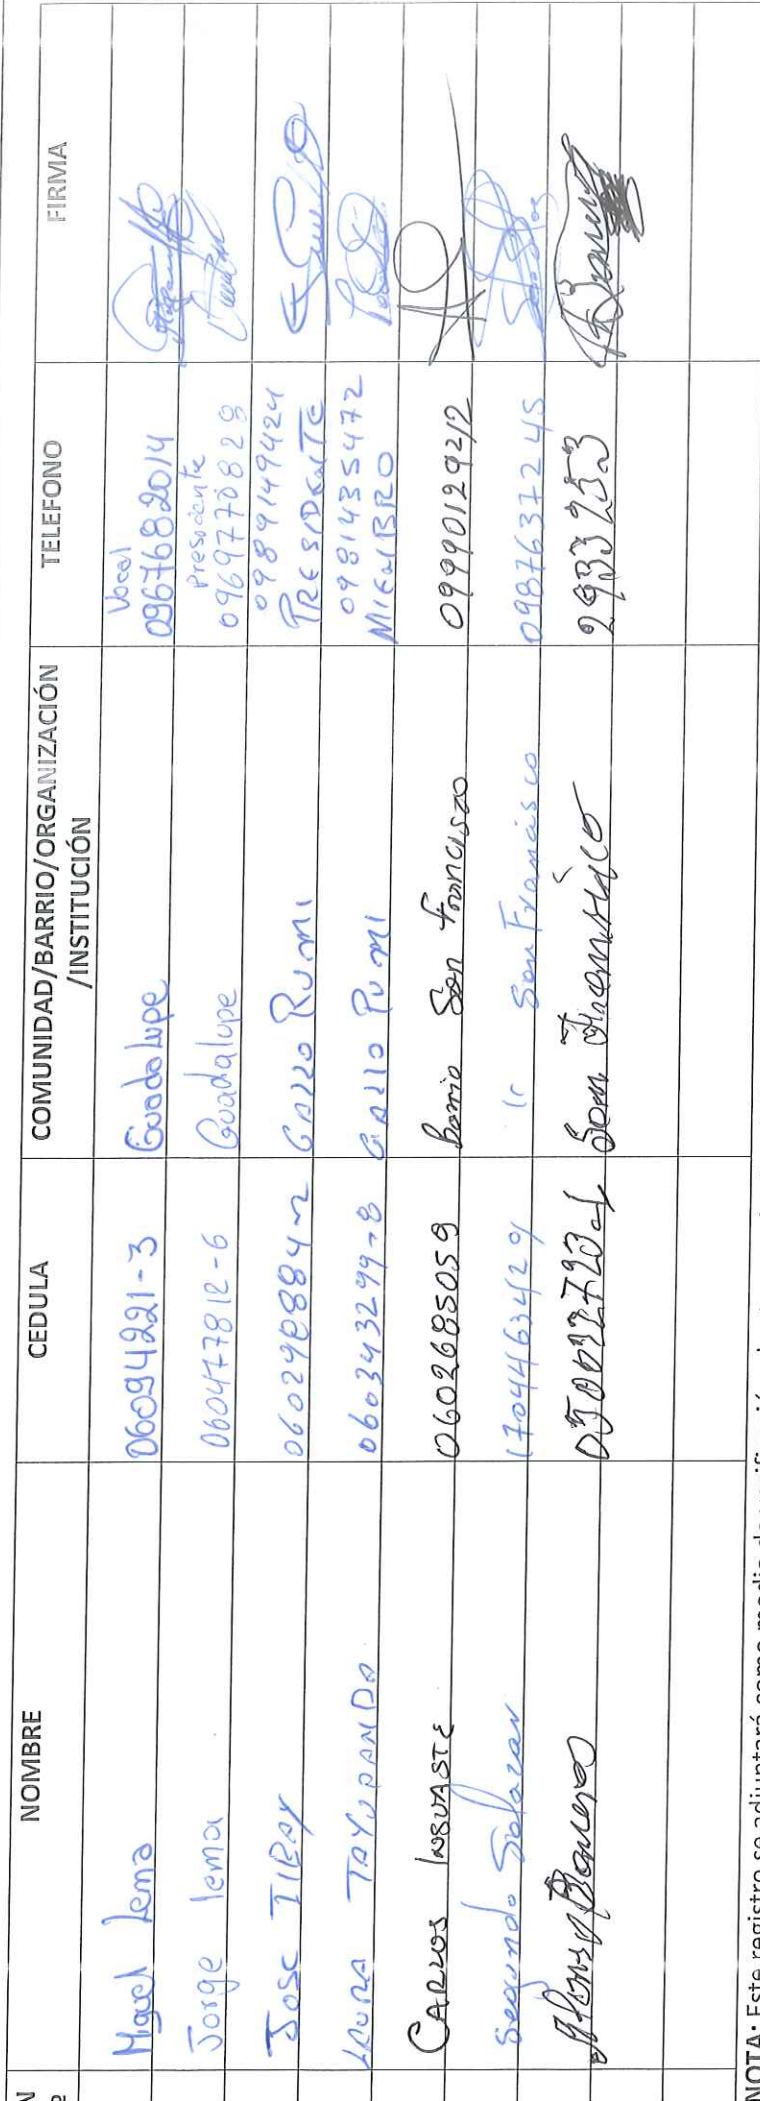 NOMBRE CEDULA COMUNIDAD/BARRIO/ORGANIZACIÓN /INSTITUCIÓN TELEFONO FIRMA
Miguel Lema 06094221-3 Guadalupe Vocal 0967682014
Jorge lema 060477812-6 Guadalupe Presidente 0969770829
JOSE 060298884-2 GALLO RUMI 0989149424 PRESIDENTE
LAURA TAYUPANDA 060343299-8 GALLO RUMI 0981435472 MIEMBRO
CARLOS INSUASTE 0602685059 Barrio San Francisco
Segundo Salazar 1704463429 San Francisco 0987637245
San Francisco 2933253
NOTA: Este registro se adjuntará como medio de verificación